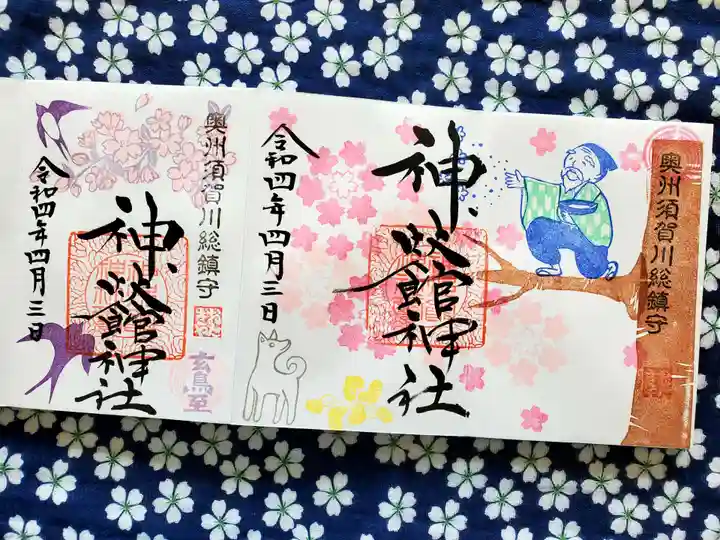 奥州須賀川総鎮守
神炊館神社
令和四年四月三日
奥州須賀川総鎮守
神炊館神社
令和四年四月三日
玄鳥至